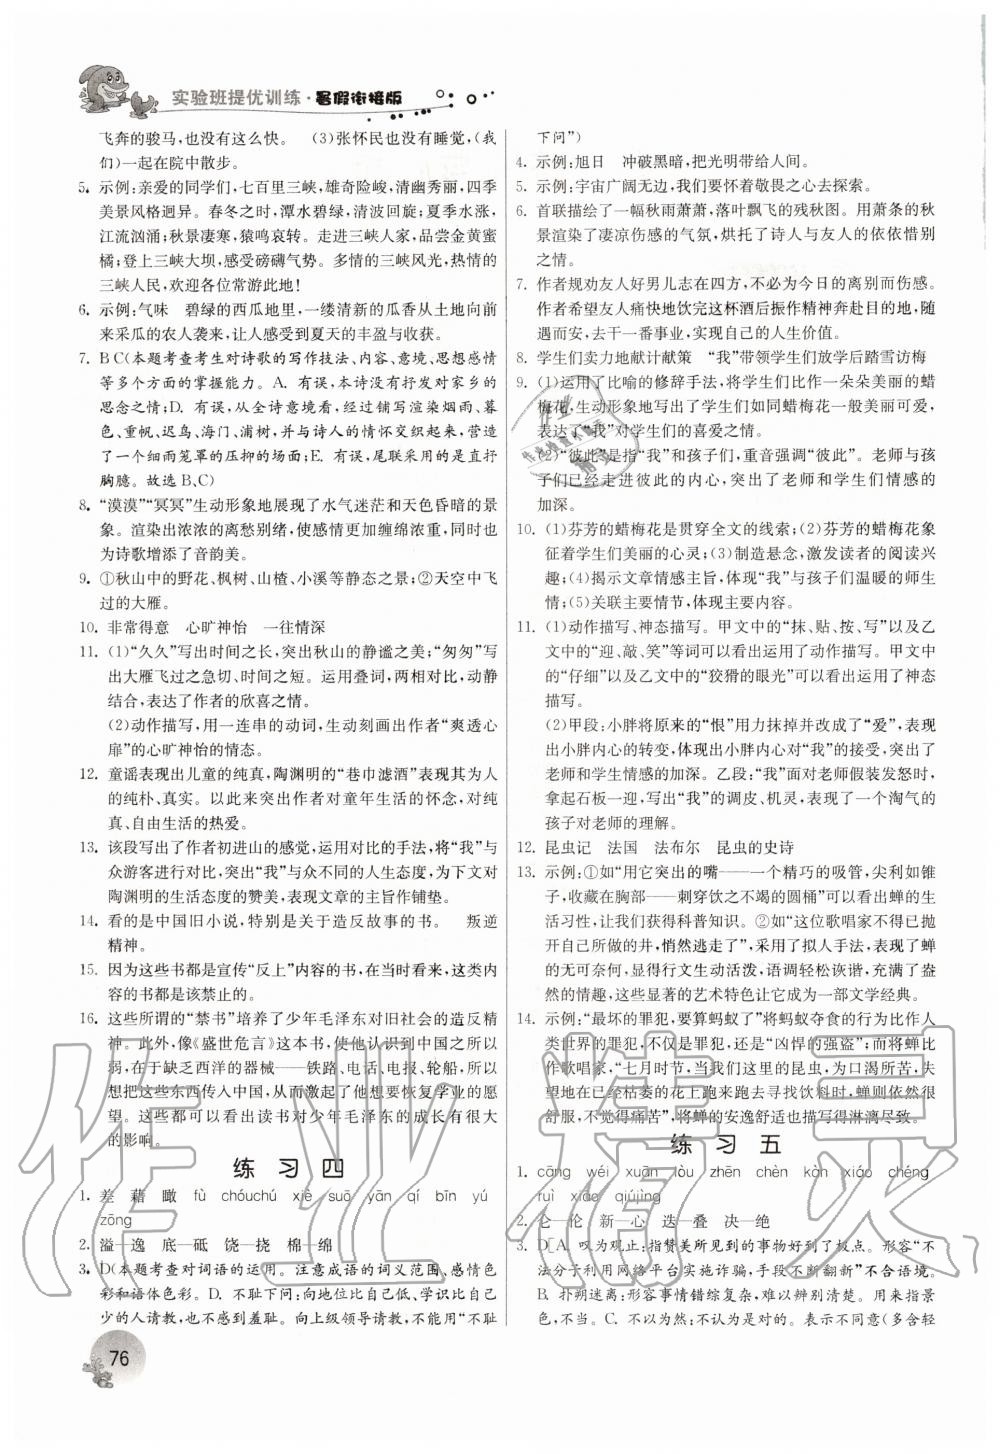 实验班提优训练·暑假衔接版
飞奔的骏马,也没有这么快。 (3)张怀民也没有睡觉,(我
们)一起在院中散步。
5. 示例:亲爱的同学们,七百里三峡,雄奇险峻,清幽秀丽,四季
美景风格迥异。春冬之时,潭水碧绿,清波回旋;夏季水涨,
江流汹涌;秋景凄寒,猿鸣哀转。走进三峡人家,品尝金黄蜜
橘;登上三峡大坝,感觉磅礴气势。多情的三峡风光,热情的
三峡人民,欢迎各位常游此地!
6. 示例:气味 碧绿的西瓜地里,一缕清新的瓜香从土地向前
来采瓜的农人袭来,让人感受到夏天的丰盈与收获。
7. B C(本题考查考生对诗歌的写作技法、内容、意境、思想感情
等多个方面的掌握能力。A. 有误,本诗没有提行发对家乡的
思念之情;D. 有误,从全诗意境看,经过铺写渲染烟雨、暮
色、重帆、迟鸟、海门、浦树,并与诗人的情怀交织起来,营造
了一个细雨笼罩的压抑的场面;E. 有误,尾联采用的是直抒
胸臆。故选 B、C)
8. “漠漠”“冥冥”生动形象地展现了水气迷茫和天色昏暗的景
象。渲染出浓浓的离愁别绪,使感情更加缠绵浓重,同时,也
为诗歌增添了音韵美。
9. ①秋山中的野花、枫树、山楂、小溪等静态之景;②天空中飞
过的大雁。
10. 非常得意 心旷神怡 一往情深
11. (1)“久久”写出时间之长,突出秋山的静谧之美;“匆匆”写
出大雁飞过之急切、时间之短。运用叠词,两相对比,动静
结合,表达了作者的欣喜之情。
(2)动作描写,用一连串的动词,生动刻画出作者“爽透心
扉”的心旷神怡的情态。
12. 童谣表现出儿童的纯真,陶渊明的“巷巾滤酒”表现其为人
的纯朴、真实。以此来突出作者对童年生活的怀念,对纯
真、自由生活的热爱。
13. 该段写出了作者初进山的感觉,运用对比的手法,将“我”与
众游客进行对比,突出“我”与众不同的人生态度,为下文对
陶渊明的生活态度的赞美,表现文章的主旨作铺垫。
14. 看的是中国旧小说,特别是关于造反故事的书。 叛逆
精神。
15. 因为这些书都是宣传“反上”内容的书,在过去,宣传这类内
容的书都是该禁止的。
16. 这些所谓的“禁书”培养了少年毛泽东对旧社会的造反精
神。此外,像《盛世危言》这本书,使他认识到中国之所以
弱,在于缺乏西洋的器械——铁路、电话、电报、轮船,所以
想把这些东西传入中国,从而激起了他想要恢复学业的愿
望。这些都可以看出读书对少年毛泽东的成长有很大
的影响。
练习四
1. 差 藉 瞰 fù chóuchú xiè suō yān qí bīn yú
zōng
2. 溢—逸 底—砥 饶—挠 棉—绵
3. D(本题考查对词语的运用。注意成语的词义范围、感情色
彩和语体色彩。D. 不耻下问:向地位比自己低、学识比自己
少的人请教,也不感到羞耻。向上级领导请教,不能用“不耻
下问”)
4. 示例:旭日 冲破黑暗,把光明带给人间。
5. 示例:宇宙广阔无边,我们要怀着敬畏之心去探索。
6. 首联描绘了一幅秋雨萧萧,落叶飘飞的残秋图。用萧条的秋
景渲染了凄凉伤感的气氛,烘托了诗人与友人的依依惜别
之情。
7. 作者规劝友人好男儿志在四方,不必为今日的离别而伤感。
作者希望友人痛快地饮完这杯酒后振作精神奔赴目的地,随
遇而安,去干一番事业,实现自己的人生价值。
8. 学生们卖力地献计献策 “我”带领学生们放学后踏雪访梅
9. (1)运用了比喻的修辞手法,将学生们比作一朵朵美丽的蜡
梅花,生动形象地写出了学生们如同蜡梅花一般美丽可爱,
表达了“我”对学生们的喜爱之情。
(2)“彼此”是指“我”和孩子们,重音强调“彼此”。老师与孩
子们已经走进彼此的内心,突出了老师和学生们情感的
加深。
10. (1)芬芳的蜡梅花是贯穿全文的线索;(2)芬芳的蜡梅花象
征着学生们美丽的心灵;(3)制造悬念,激发读者的阅读兴
趣;(4)揭示文章情感主旨,体现“我”与孩子们温暖的师生
情;(5)关联主要情节,体现主要内容。
11. (1)动作描写、神态描写。甲文中的“抹、贴、按、写”以及乙
文中的“迎、敲、笑”等词可以看出运用了动作描写。甲文中
的“仔细”以及乙文中的“狡猾的眼光”可以看出运用了神态
描写。
(2)甲段:小胖将原来的“恨”用力抹掉并改成了“爱”,表现
出小胖内心的转变,体现出小胖内心对“我”的接受,突出了
老师和学生情感的加深。乙段:“我”面对老师假装发怒时,
拿起石板一迎,写出“我”的调皮、机灵,表现了一个淘气的
孩子对老师的理解。
12. 昆虫记 法国 法布尔 昆虫的史诗
13. 示例:①如“用它突出的嘴——一个精巧的吸管,尖利如锥
子,收藏在胸部——刺穿饮之不竭的圆桶”可以看出蝉的生
活习性,让我们获得科普知识。②如“这位歌唱家不得已抛
开自己所做的井,悄然逃走了”,采用了拟人手法,表现了蝉
的无可奈何,显得行文生动活泼,语调轻松诙谐,充满了盎
然的情趣,这种显著的艺术特色让它成为一部文学经典。
14. 示例:“最坏的罪犯,要算蚂蚁了”将蚂蚁夺食的行为比作人
类世界的罪犯,不仅是罪犯,还是“凶悍的强盗”;而将蝉比
作歌唱家,“七月时节,当我们这里的昆虫,为口渴所苦,失
望地在已经枯萎的花上跑来跑去寻找饮料时,蝉则依然很
舒服,不觉得痛苦”,将蝉的安逸舒适也描写得淋漓尽致。
练习五
1. cāng wéi xuān lòu zhēn chèn kòn xiáo chéng
ruì xiáo qiújìng
2. 仑—伦 新—心 迭—叠 决—绝
3. D[A. 叹为观止:指赞美所见到的事物好到了极点。形容“不
法分子利用网络平台实施诈骗,手段不断翻新”不合语境。
B. 扑朔迷离:形容事情错综复杂,难以辨别清楚。用来指景
色,不当。C. 不以为然:不认为是对的。表示不同意(多含轻
76
作业精灵